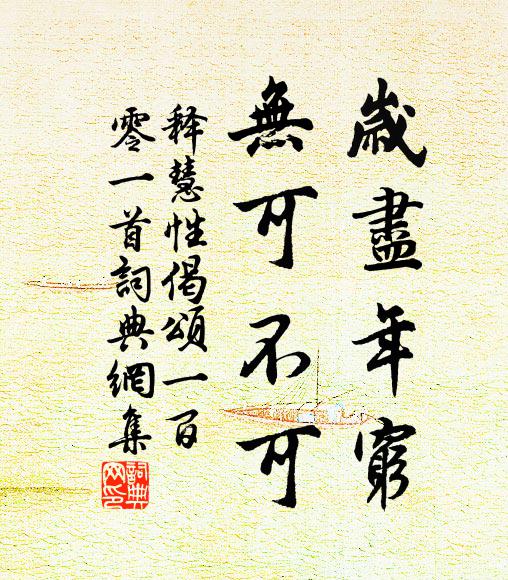 歲盡年窮
無可不可
釋慧性偈頌一百
零一首詞典網集
詞典
网印